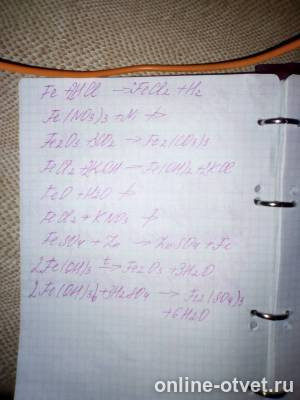 Fe + 2HCl → FeCl2 + H2
Fe(NO3)3 + Ni ↛
Fe2O3 + 3CO2 → Fe2(CO3)3
FeCl2 + 2KOH → Fe(OH)2 + 2KCl
FeO + H2O ↛
FeCl2 + KNO3 ↛
FeSO4 + Zn → ZnSO4 + Fe
2Fe(OH)3 t→ Fe2O3 + 3H2O
2Fe(OH)3 + 3H2SO4 → Fe2(SO4)3
+ 6H2O
online-otvet.ru